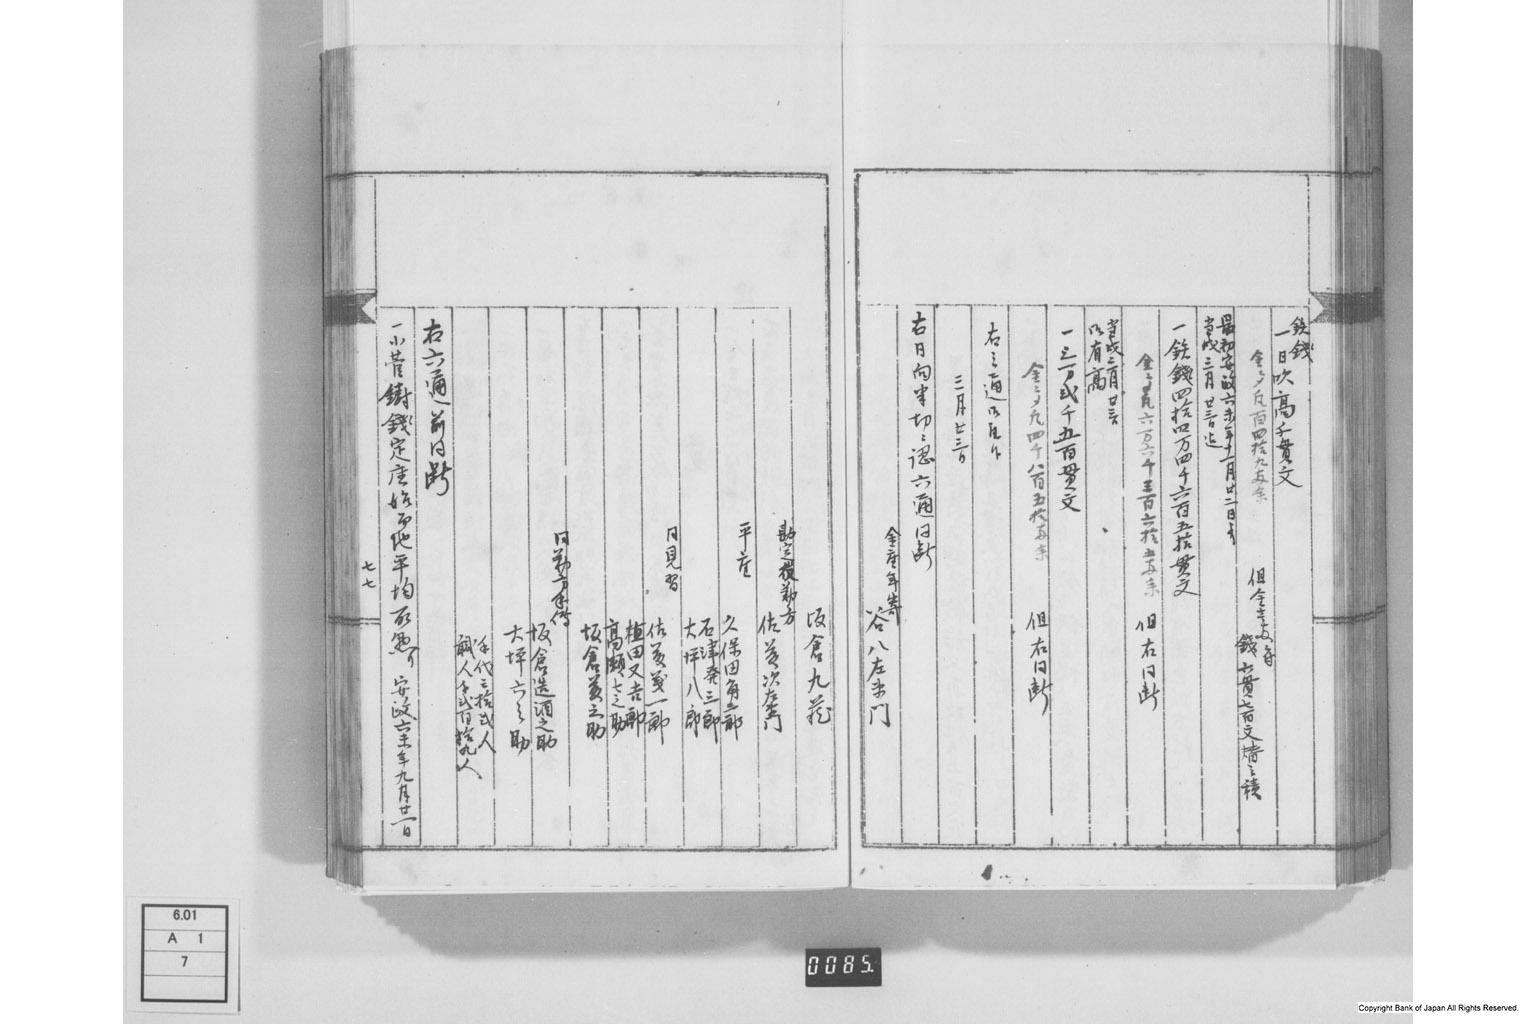 鉄銭
一日吹高千貫文
金弐百四拾九両余
但金壱両ニ付
銭七貫七百文替之積
最初安政六未年十一月廿二日ゟ
当戌三月廿二日迄
一鉄銭四拾四万四千六百五拾貫文
金 六万六千三百六拾五両余
但右同断
当戌三月廿三日
以有高
一三万弐千五百貫文
金 四千八百五拾両余
但右同断
右之通
三月廿三日
右同向半切ニ認六通同断
金座年寄
谷八左衛門
坂倉九蔵
勘定役勤方
佐藤次左衛門
平座
久保田角三郎
石津発三郎
大坪八郎
同見習
佐藤義一郎
植田又吉郎
高瀬七之助
坂倉藤之助
同勤方手伝
坂倉造酒之助
大坪六之助
手代三拾弐人
職人千弐百拾九人
右六通前同断
一小菅鋳銭定座
地平均
安政六未年九月廿一日
七七
6.01
A 1
7
0085.
Copyright Bank of Japan All Rights Reserved.